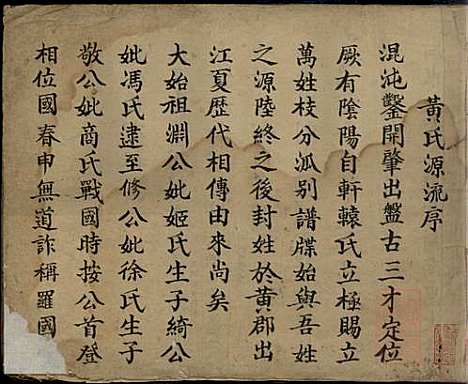 黃氏源流序
混沌鑿開肇出盤古三才定位
厥有陰陽自軒轅氏立極賜立
萬姓枝分派別譜牒始與吾姓
之源陸終之後封姓於黃郡出
江夏歴代相傳由來尚矣
大始祖淵公妣姬氏生子綺公
妣馮氏逮至修公妣徐氏生子
敬公妣商氏戰國時按公首登
相位國春申無道詐稱羅國